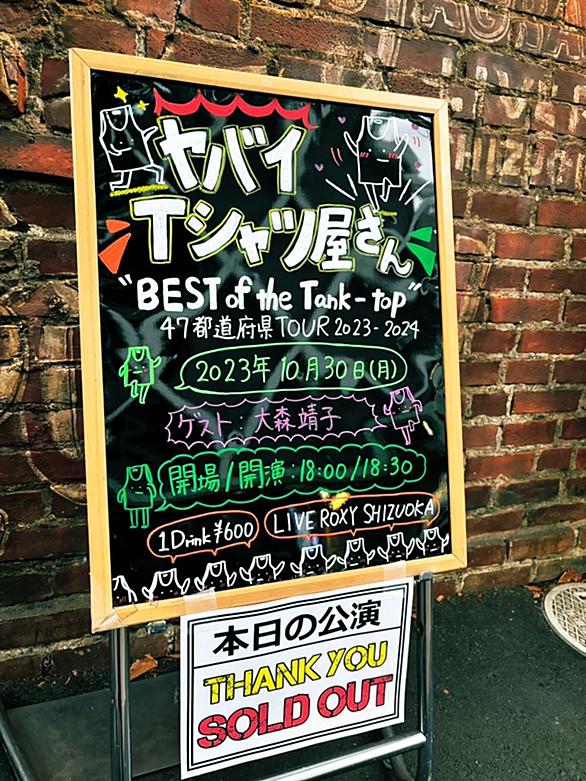 ヤバイ
Tシャツ屋さん
"BEST of the Tank-top"
47都道府県TOUR 2023-2024
2023年10月30日(月)
ゲスト:大森靖子
開場/開演:18:00/18:30
1Drink¥600
LIVE ROXY SHIZUOKA
本日の公演
THANK YOU
SOLD OUT